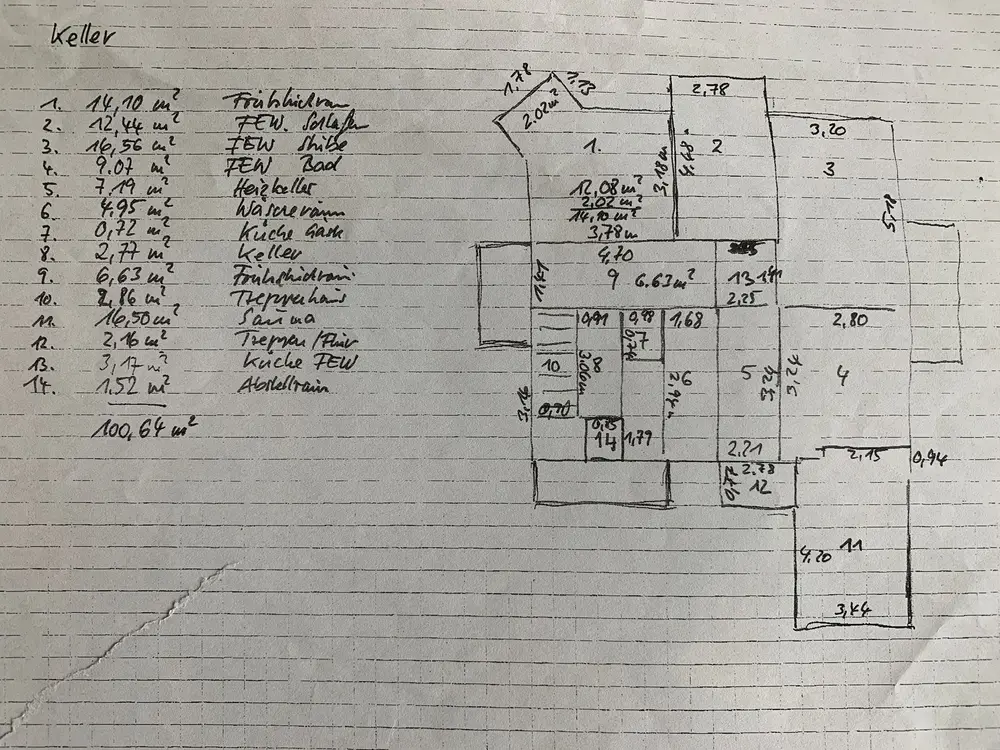 Keller
1. 14,10 m² Frühstücksraum
2. 12,44 m² FEW. Schlafen
3. 16,56 m² FEW Stube
4. 9.07 m² FEW Bad
5. 7.19 m² Heizkeller
6 4.95 m² Wäscheraum
7. 0,72 m² Küche Gast
8. 2,77 m² Keller
9. 6,63 m² Frühstücksraum
10. 2,86 m² Treppenhaus
11. 16,50 m² Sauna
12. 2,16 m² Treppen/Flur
13. 3,17 m² Küche FEW
14. 1.52 m² Abstellraum
100,64 m²
1.78
2.02 m²
2,78
3,20
1. 2 3
3,18 m 4.48
5,18
12,08 m²
2,02 m²
14,10 m²
3,78 m
4,70
9 6.63 m² 13 1,41
1,41 2,25
0,91 0,98 1,68 2,80
7 0,74
10 8 3,06 m 6 2,94 m 5 3,24 3,24 4
3,16 0,90
0,85
14 1,79 2,21
2,15 0,94
2,78
0,77 12
4,20 11
3,44